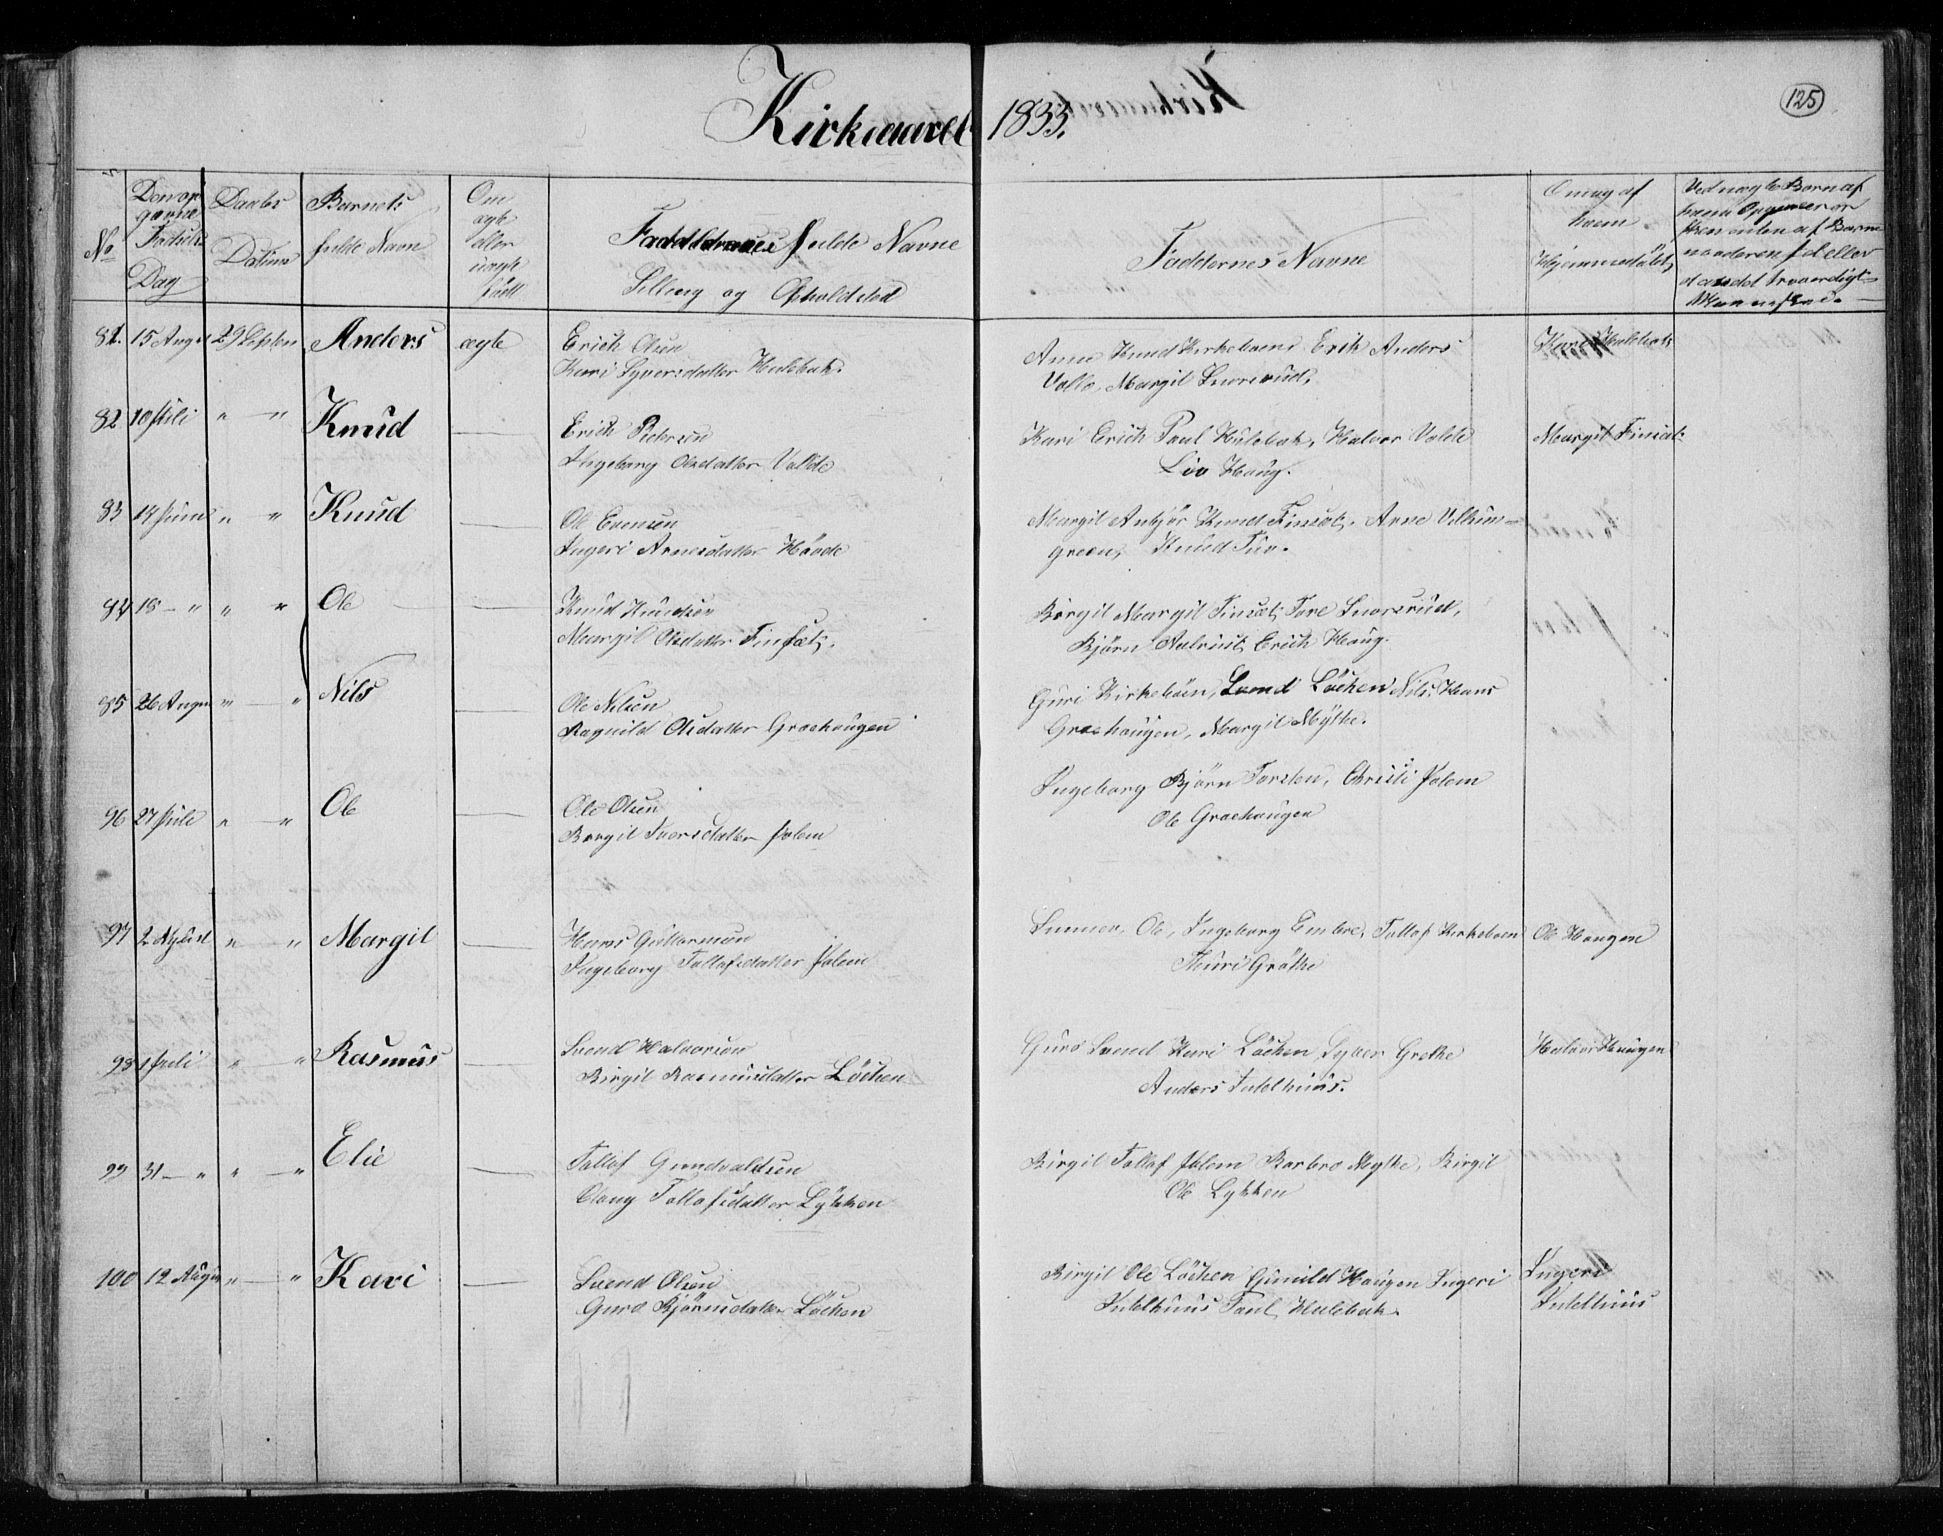 Kirkeaaret 1833.
125
No
Den op
gavne
Fødsels
Dag
Daabs
Datum
Barnets
fulde Navn
Om
ægte
eller
uægte
født
Forældrenes fulde Navne
Stilling og Opholdsted
Faddernes Navne
Om og af
hvem
Hjemmedøbt
Ved uægte Børn af
hvem Opgaven er
skeen enten af Barne
moderen selv eller
et andet troværdigt
Menneske
81. 15 August 29 Septem Anders ægte Erich Olsen
Kari Syversdatter Hulebak.
Anne Knud Kirkeboen Erik Anders
Volle, Margit Snoresrud.
Hulebak
82 10 Juli " — " Knud — Erich Pedersen
Ingeborg Olsdatter Volde
Kari Erich Paul Hulebak, Halvor Volde
Liv Haug.
Margit Finset
83 14 Juni " " Knud — Ole Evensen
Ingeri Arnesdatter Hövde
Margit Knud Finset, Arne Velkin-
green, Knud Tuv.
84 18 — " " " Ole — Knud Knudsen
Margit Olsdatter Finset.
Birgit Margit Finset, Tore Snoresrud,
Bjørn Aalrust, Erich Haug.
85 26 Augu " — " Nils — Ole Nilsen
Ragnild Olsdatter Graehaugen
Guri Kirkeboen, Svend Löcken Nils, Hans
Graehaugen, Margit Mythe.
96 27 Juli " — " Ole — Ole Olsen
Borgil Iversdatter Jolem
Ingeborg Bjørn Torsten, Christi Jolem
Ole Graehaugen
97 2 August " — " Margit — Hans Guttormsen
Ingeborg Tollofsdatter Jolem
Sunnev, Ole, Ingeborg Embre, Tollof Kirkeboen
Thuri Gröthe
Ole Haugen
98 1 Juli " — " Rasmus — Svend Halvorsen
Birgit Rasmusdatter Löcken
Guro Svend Kari Löcken, Syver Grothe
Anders Intelhuus.
Halvor Haugen
99 31 — " " — " Elie — Tollof Gundvaldsen
Tollofsdatter Lykken
Birgit Tollof Jolem Barbro Mythe, Birgit
Ole Lykken
100 12 Augus " — " Kari — Svend Olsen
Guro Bjørnsdatter Löcken
Birgit Ole Löcken Gunild Haugen Ingeri
Intelhuus Paul Hulebak.
Ingeri
Intelhuus